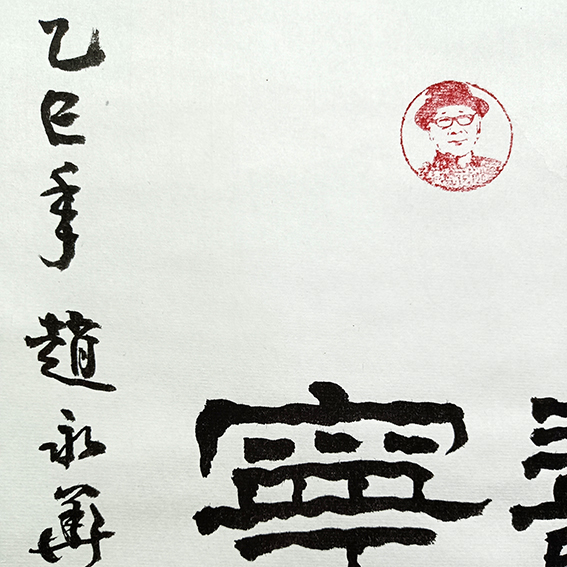 寧
乙巳年 趙永華